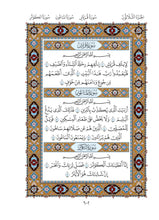 الجزء الثلاثون سورة قريش سورة الماعون سورة الكوثر
سورة قريش
بسم الله الرحمن الرحيم
لإيلاف قريش ١ إيلافهم رحلة الشتاء والصيف ٢
فليعبدوا رب هذا البيت ٣ الذي أطعمهم
من جوع وآمنهم من خوف ٤
سورة الماعون
بسم الله الرحمن الرحيم
أرأيت الذي يكذب بالدين ١ فذلك الذي يدع
اليتيم ٢ ولا يحض على طعام المسكين ٣ فويل
للمصلين ٤ الذين هم عن صلاتهم ساهون ٥
الذين هم يراءون ٦ ويمنعون الماعون ٧
سورة الكوثر
بسم الله الرحمن الرحيم
إنا أعطيناك الكوثر ١ فصل لربك وانحر ٢
إن شانئك هو الأبتر ٣
٦٠٢